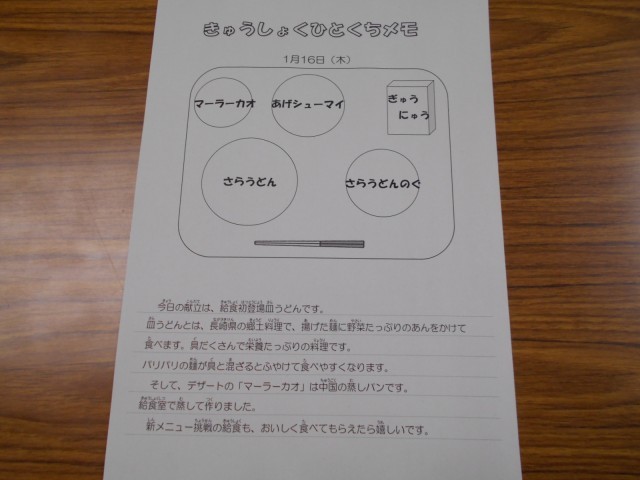 きゅうしょくひとくちメモ
1月16日（木）
マーラーカオ あげシューマイ ぎゅう
にゅう
さらうどん さらうどんのぐ
今日の献立は、給食初登場皿うどんです。
皿うどんとは、長崎県の郷土料理で、揚げた麺に野菜たっぷりのあんをかけて
食べます。具だくさんで栄養たっぷりの料理です。
パリパリの麺が具と混ざるとふやけて食べやすくなります。
そして、デザートの「マーラーカオ」は中国の蒸しパンです。
給食室で蒸して作りました。
新メニュー挑戦の給食も、おいしく食べてもらえたら嬉しいです。